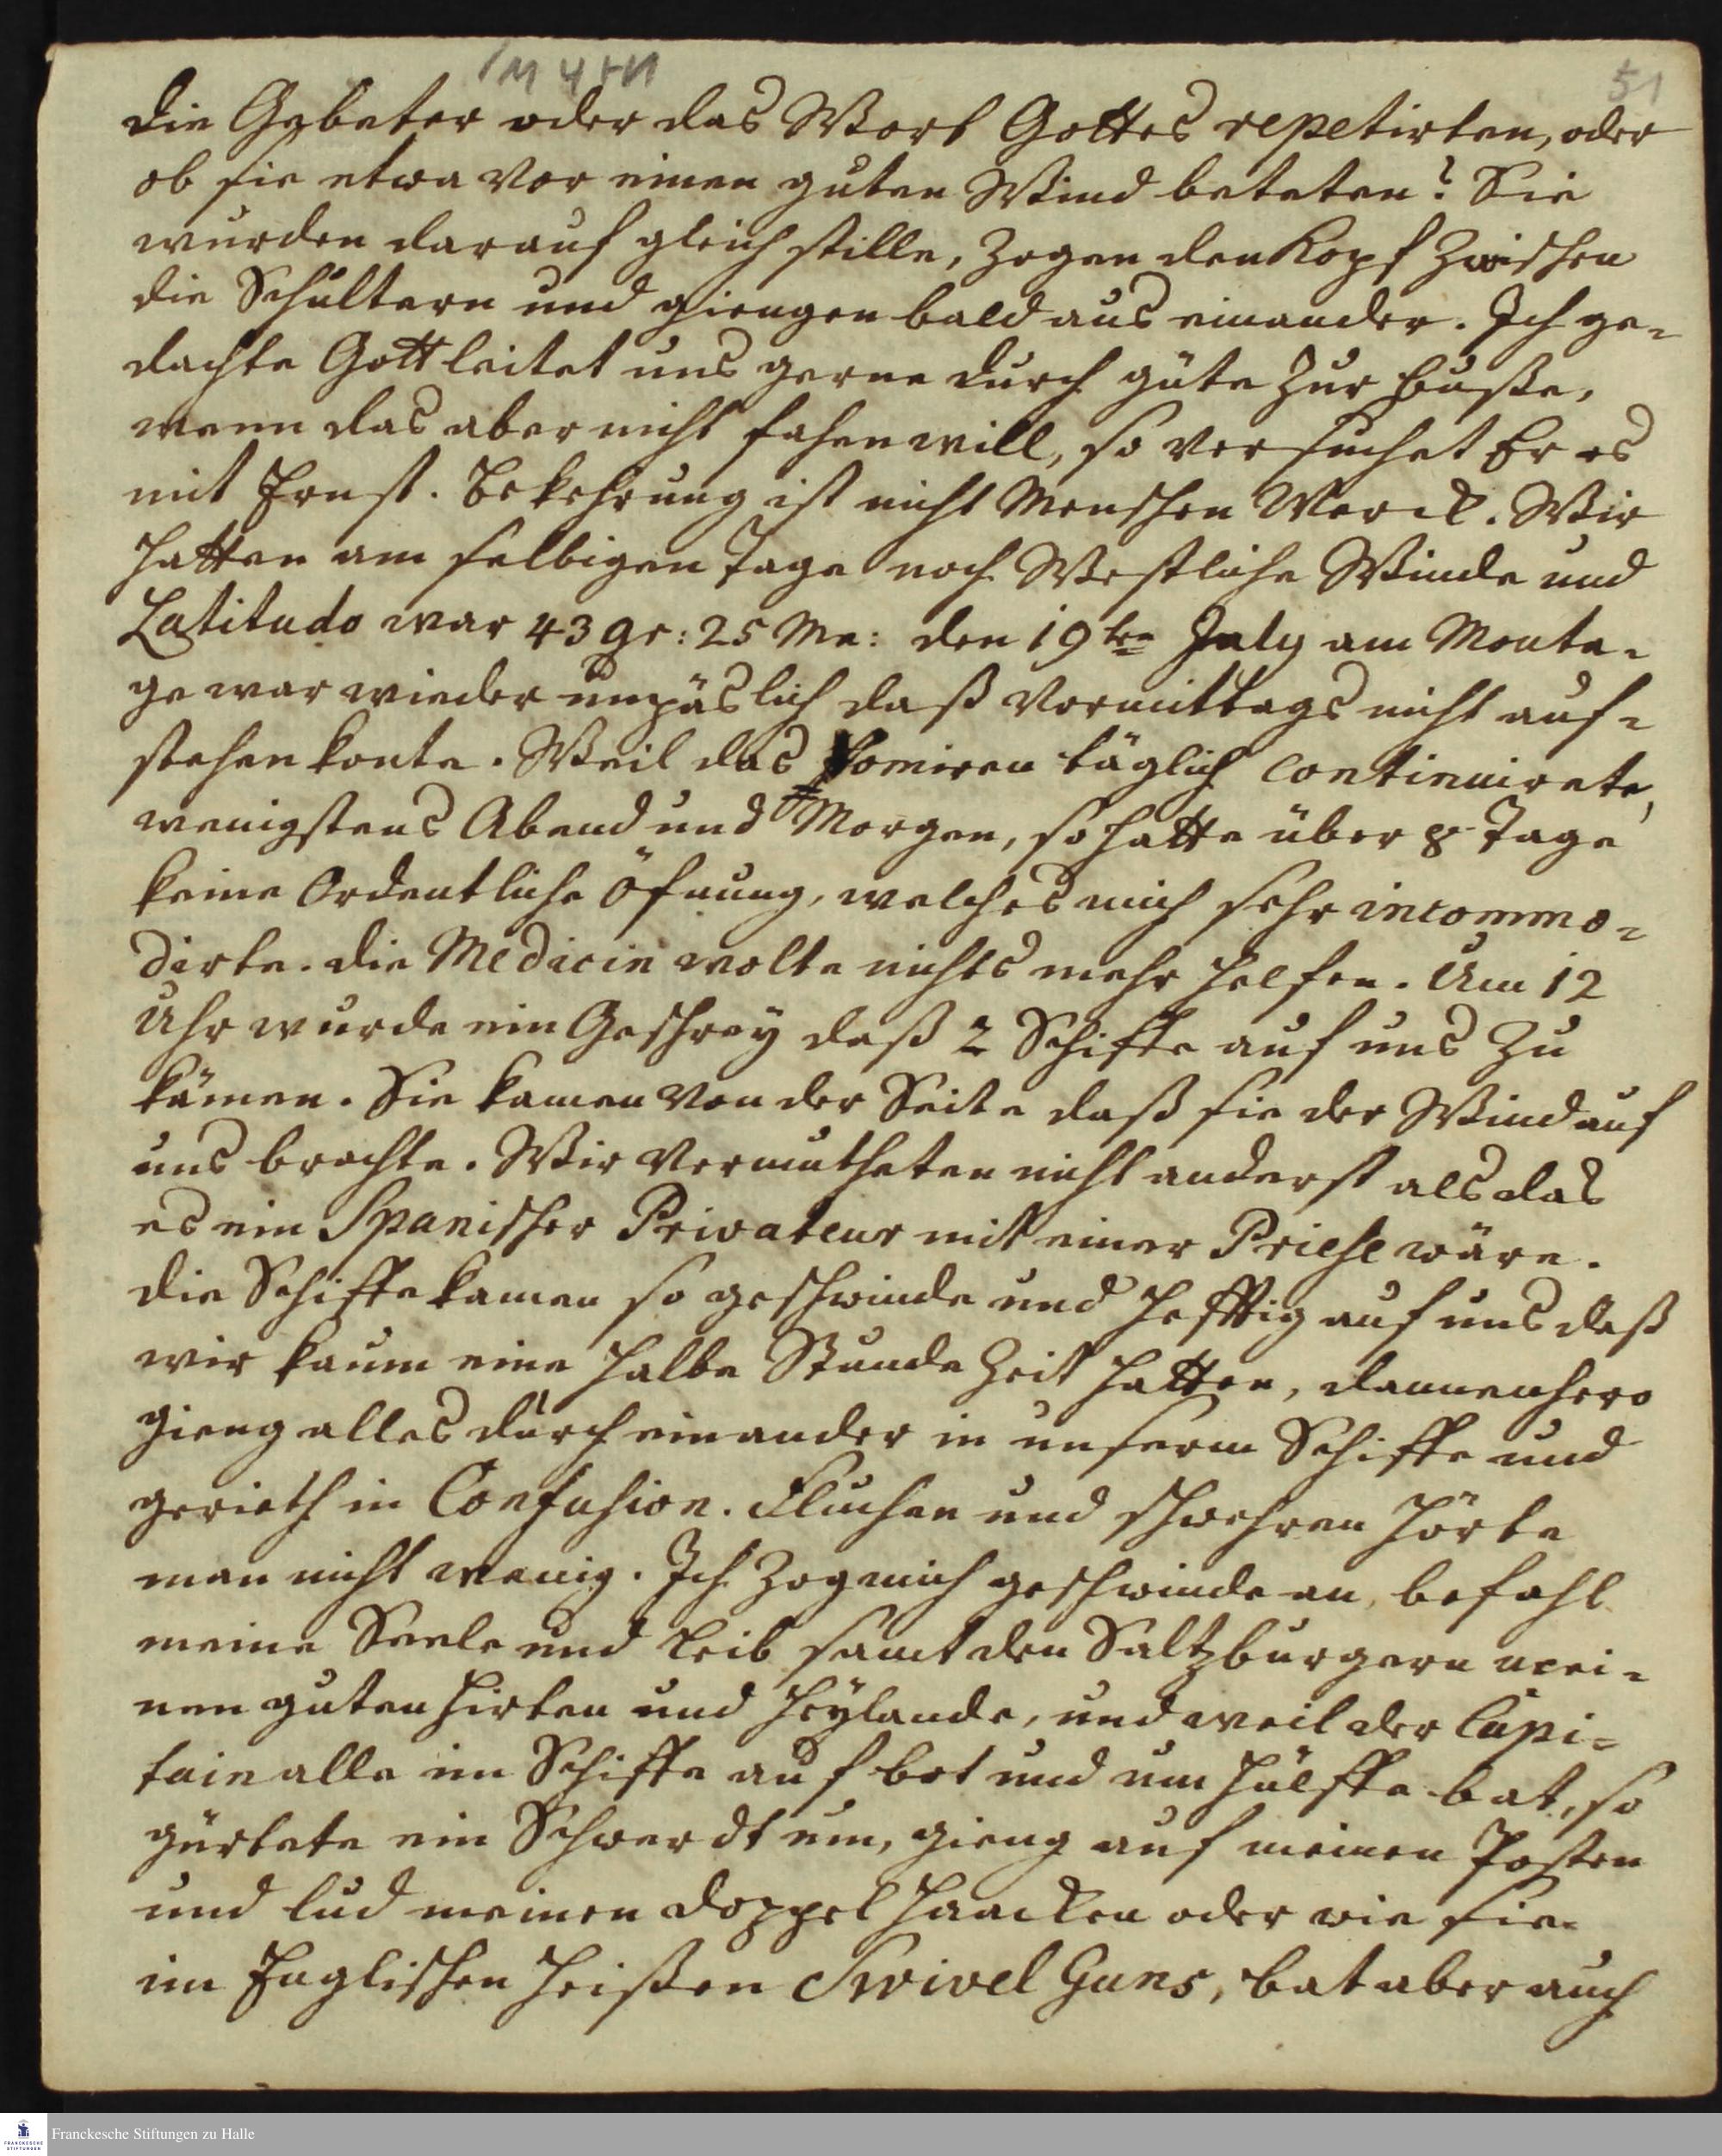 1M4H1
51
die Gebeter oder das Wort Gottes repetirten, oder
ob sie etwa vor einen guten Wind beteten? Sie
wurden darauf gleich stille, zogen den Kopf zwischen
die Schultern und giengen bald aus einander. Ich ge-
dachte Gott leitet uns gerne durch güte zur Buße,
wenn das aber nicht fahen will, so versuchet Er es
mit Ernst. Bekehrung ist nicht Menschen Werck. Wir
hatten am selbigen Tage noch Westliche Winde und
Latitudo war 43 gr: 25 Mn: den 19ten July am Monta-
ge war wieder unpäslich daß Vormittags nicht auf-
stehen konte. Weil das Vomiren täglich continuirete,
wenigstens Abend und Morgen, so hatte über 8 Tage
keine Ordentliche Öfnung, welches mich sehr incommo-
dirte. die Medicin wolte nichts mehr helfen. Um 12
Uhr wurde ein Geschrey daß 2 Schiffe auf uns zu
kämen. Sie kamen von der Seite daß sie der Wind auf
uns brachte. Wir vermutheten nicht anderst als das
es ein Spanischer Privateur mit einer Priese wäre.
die Schiffe kamen so geschwinde und hefftig auf uns daß
wir kaum eine halbe Stunde Zeit hatten, dannenhero
gieng alles durch einander in unserm Schiffe und
gerieth in Confusion. Fluchen und schwehren hörte
man nicht wenig. Ich zog mich geschwinde an, befahl
meine Seele und Leib samt den Saltzburgern mei-
nen guten Hirten und Heylande, und weil der Capi-
tain alle im Schiffe auf bot und um Hülffe bat, so
gürtete ein Schwerdt um, gieng auf meinen Posten
und lud meinen doppel Haacken oder wie sie
im Englischen heißen Swivel Guns, bat aber auch
Franckesche Stiftungen zu Halle
FRANCKESCHE
STIFTUNGEN